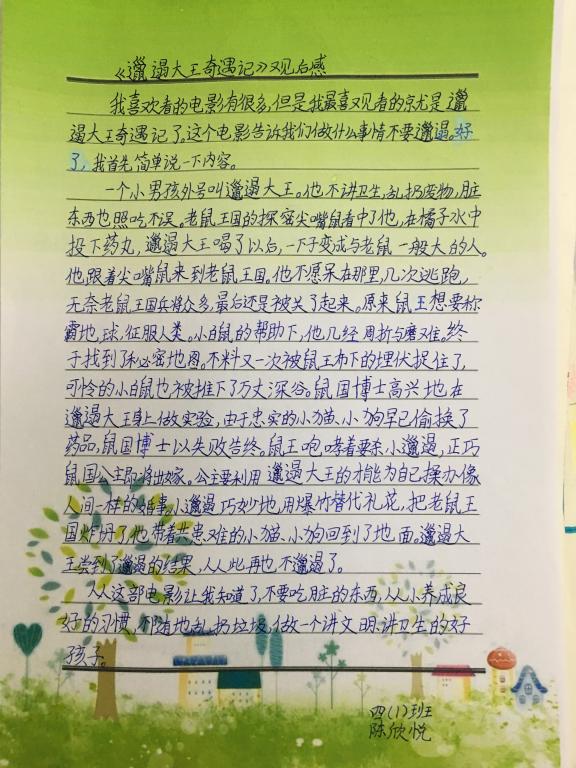 《邋遢大王奇遇记》观后感
我喜欢看的电影有很多,但是我最喜观看的京尤是邋
遢大王奇遇记了。这个电影告诉我们做什么事情不要邋遢。好
了,我首先简单说一下内容。
一个小男孩外号叫邋遢大王。他不讲卫生,乱扔废物,脏
东西也照吃不误。老鼠王国的探密尖嘴鼠看中了他,在橘子水中
投下药丸,邋遢大王喝了以后,一下子变成与老鼠一般大的人。
他跟着尖嘴鼠来到老鼠王国。他不愿呆在那里,几次逃跑,
无奈老鼠王国兵将众多,最后还是被关了起来。原来鼠王想要称
霸地,球,征服人类。小白鼠的帮助下,他几经周折与磨难。终
于找到了秘密地图。不料又一次被鼠王布下的埋伏捉住了,
可怜的小白鼠也被推下了万丈深谷。鼠国博士高兴地在
邋遢大王身上做实验,由于忠实的小猫、小狗早已偷换了
药品,鼠国博士以失败告终。鼠王咆哮着要杀小邋遢,正巧
鼠国公主即将出嫁。公主要利用邋遢大王的才能为自己操办像
人间一样的婚事,小邋遢巧妙地,用爆竹替代礼花,把老鼠王
国炸坍了,他带着共患难的小猫、小狗回到了地面。邋遢大
王尝到了邋遢的结果,从此再也不邋遢了。
从这部电影让我知道了,不要吃脏的东西,从小养成良
好的习惯,不随地乱扔垃圾,做一个讲文明、讲卫生的好
孩子。
四(1)班
陈欣悦